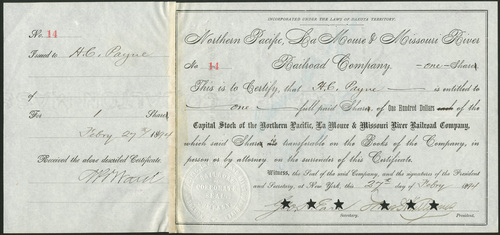 No. 14
Issued to H.C. Payne
of
For 1 Share
Febry 27th 1894
Received the above described Certificate.
INCORPORATED UNDER THE LAWS OF DAKOTA TERRITORY.
Northern Pacific, La Moure & Missouri River
No 14 Railroad Company —one— Share
This is to Certify, that H.C. Payne is entitled to
one full paid Share of One Hundred Dollars each of the
Capital Stock of the Northern Pacific, La Moure & Missouri River Railroad Company,
which said Share is transferable on the Books of the Company, in
person or by attorney on the surrender of this Certificate.
Witness, the Seal of the said Company, and the signatures of the President
and Secretary, at New York, this 27th day of Febry 1894
Secretary. President.